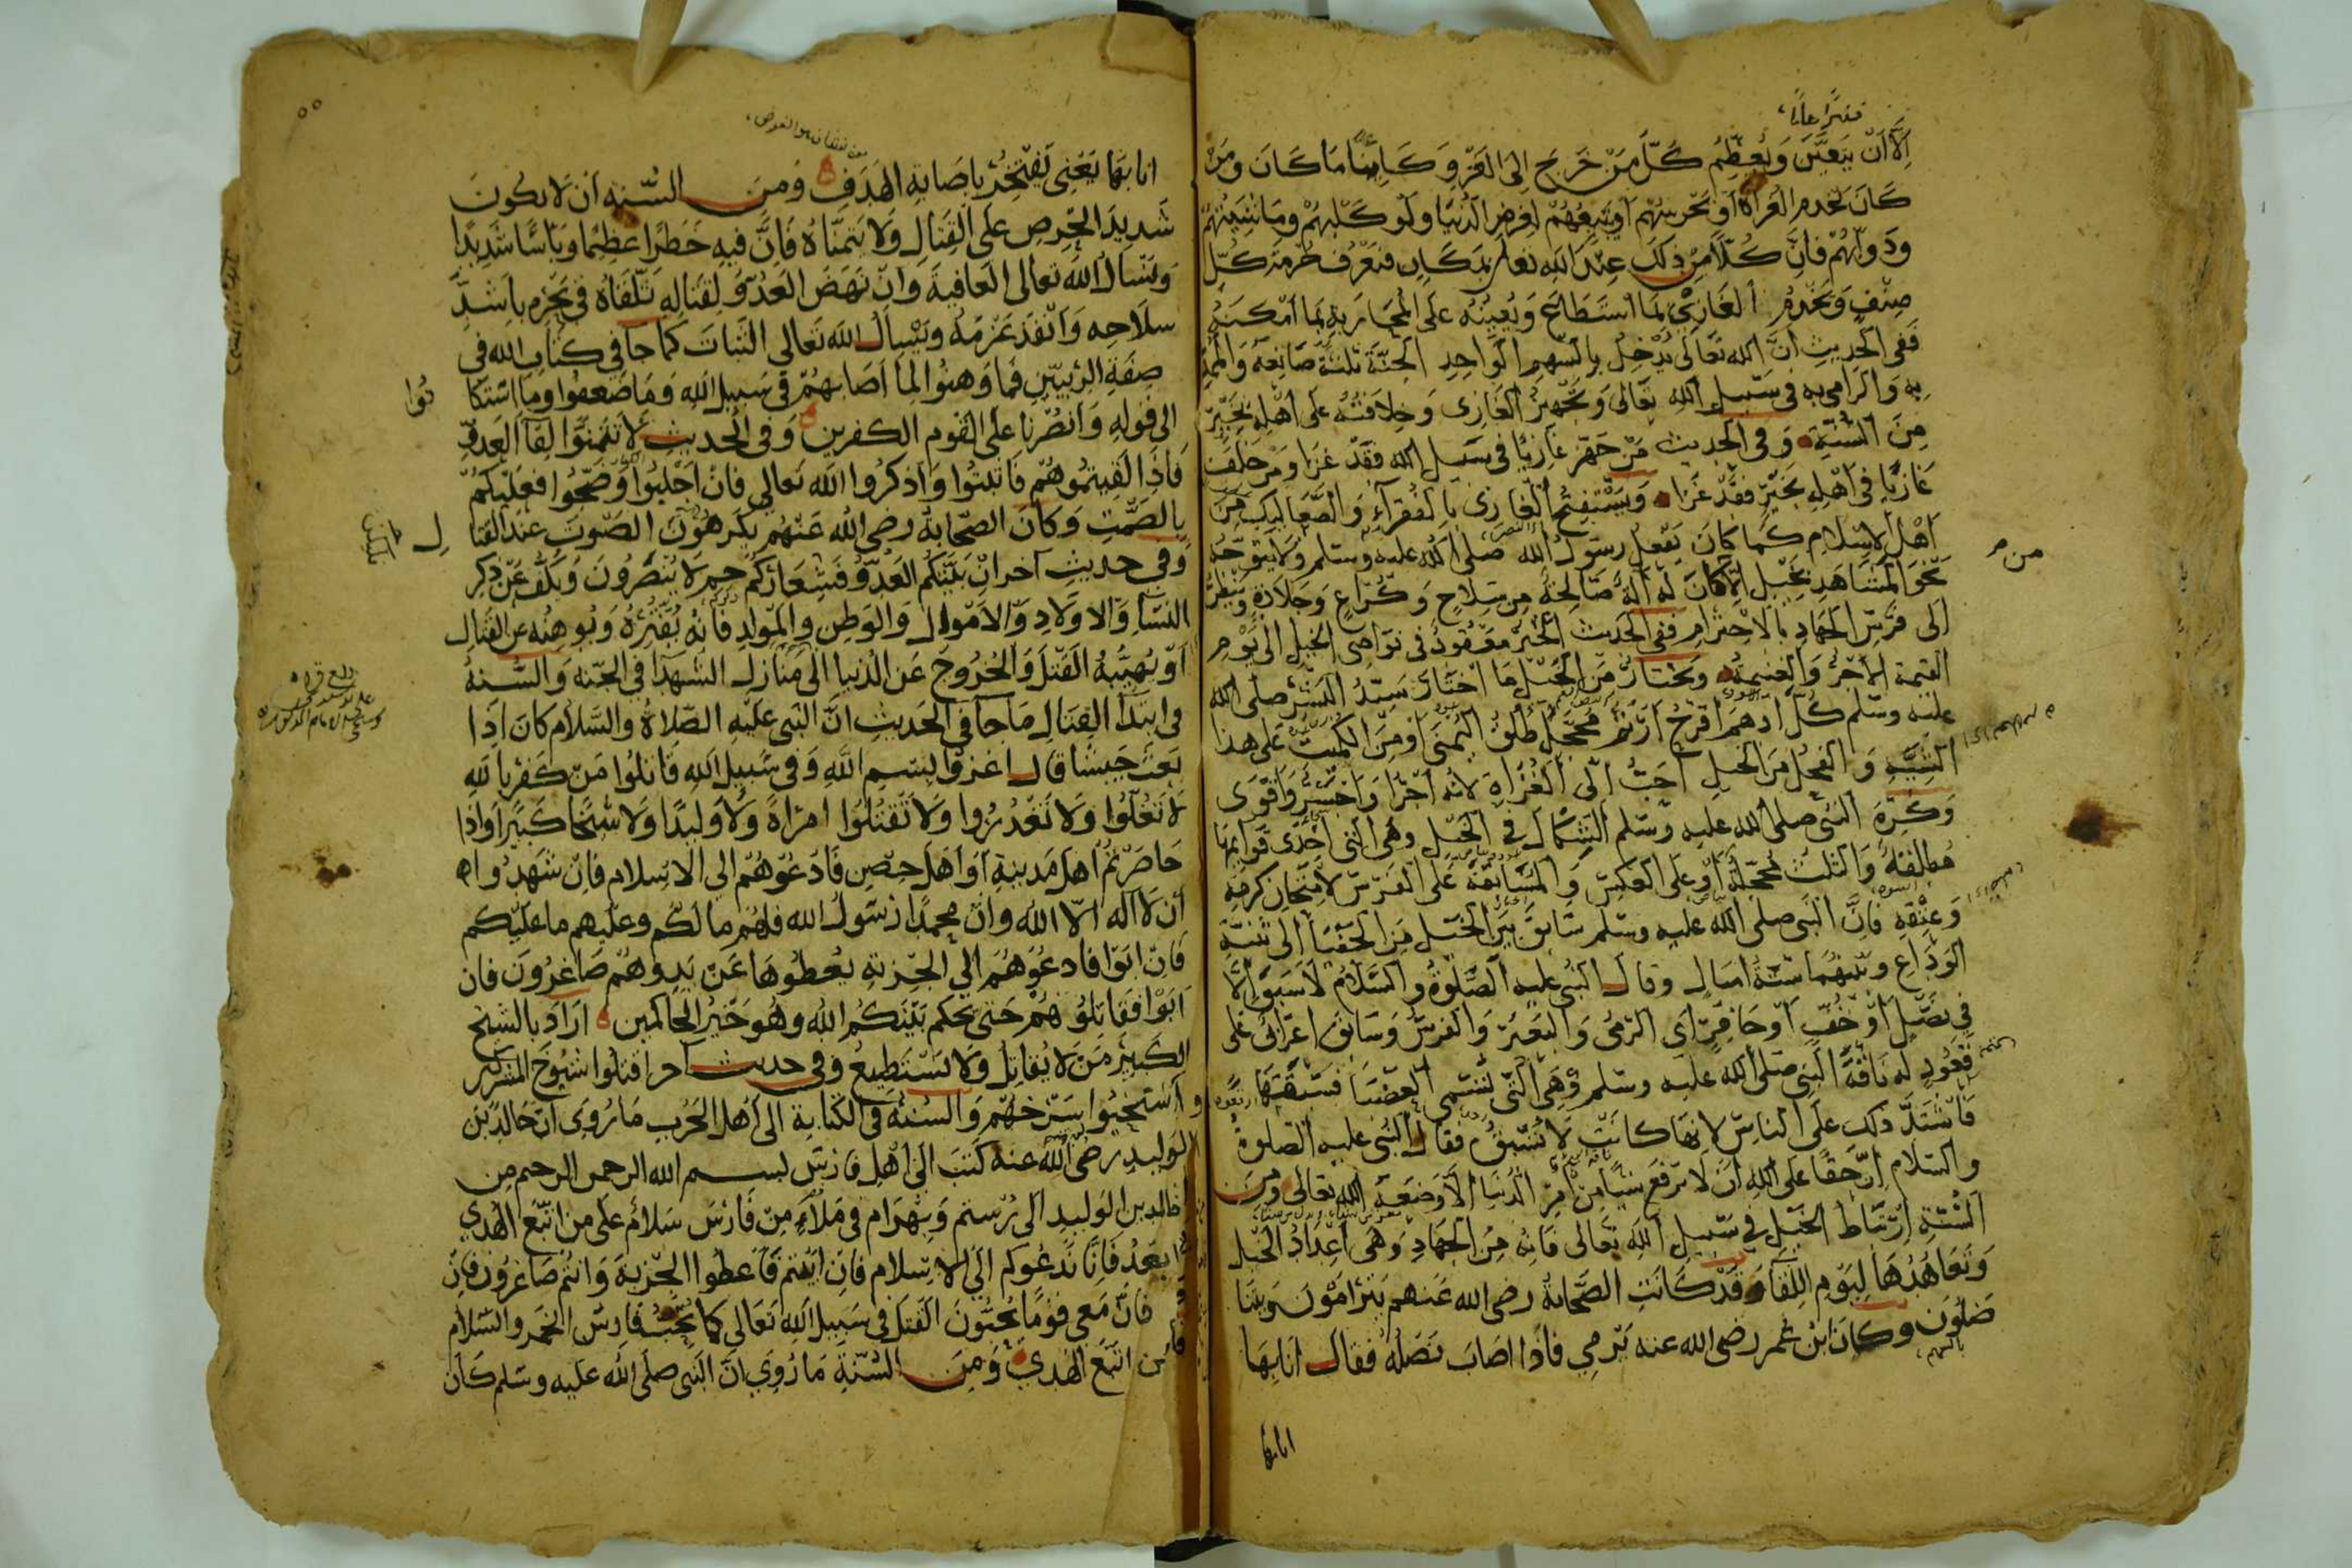 إلا أن يتعين ويعظم كل من خرج إلى الغزو كائنا ما كان ومن
كان يخدم الغزاة أو يحرسهم أو يتبعهم لغرض الدنيا ولو كلبهم وماشيتهم
ودوابهم فإن كلا من ذلك عند الله تعالى بمكان فتعرف حرمة كل
صنف ويخدم الغازي بما استطاع ويعينه على المحاربة بما أمكنه
ففي الحديث أن الله تعالى يدخل بالسهم الواحد الجنة ثلثة صانعه والممد
به والرامي به في سبيل الله تعالى وتجهيز الغازي وخلافته على أهله بخير
من السنة وفي الحديث من جهز غازيا في سبيل الله فقد غزا ومن خلف
غازيا في أهله بخير فقد غزا ويستفتح الغازي بالفقراء والصعاليك من
أهل الإسلام كما كان يفعل رسول الله صلى الله عليه وسلم ولا يتوجه
نحو المشاهد بخيل إلا كان له آلة صالحة من سلاح وكراع وجلادة وينظر
إلى فرس الجهاد بالاحترام ففي الحديث الخير معقود في نواصي الخيل إلى يوم
القيمة الأجر والغنيمة ويختار من الخيل ما اختار سيد البشر صلى الله
عليه وسلم كل أدهم أقرح أرثم محجل طلق اليمنى أو من الكميت على هذا
الشية والفحل من الخيل أحب إلى الغزاة لأنه أجرأ وأجسر وأقوى
وكره النبي صلى الله عليه وسلم الشكال في الخيل وهي التي أحدى قوائمها
مطلقة والثلث محجلة أو على العكس والمسابقة على الفرس لامتحان كرمه
وعتقه فإن النبي صلى الله عليه وسلم سابق بين الخيل من الحفيا إلى ثنية
الوداع وبينهما ستة أميال وقال النبي عليه الصلوة والسلام لا سبق إلا
في نصل أو خف أو حافر أي الرمي والبعير والفرس وسابق أعرابي على
قعود له ناقة النبي صلى الله عليه وسلم وهي التي تسمى العضباء فسبقها
فاشتد ذلك على الناس لأنها كانت لا تسبق فقال النبي عليه الصلوة
والسلام إن حقا على الله أن لا يرفع شيئا من أمر الدنيا إلا وضعه الله تعالى ومن
السنة ارتباط الخيل في سبيل الله تعالى فإنه من الجهاد وهي إعداد الخيل
وتعاهدها ليوم اللقاء وقد كانت الصحابة رضي الله عنهم يترامون ويتنا
ضلون وكان ابن عمر رضي الله عنه يرمي فإذا أصاب نصله فقال أنا بها
انا بها
٥٥
أنا بها يعني يفتخر بإصابة الهدف ومن السنه أن لا يكون
شديد الحرص على القتال ولا يتمناه فإن فيه خطرا عظيما وبأسا شديدا
ويسأل الله تعالى العافية وإن نهض العدو لقتاله تلقاه في حزم بأشد
سلاحه وأنفذ عزمه ويسأل الله تعالى الثبات كما جا في كتاب الله في
صفة الربيين فما وهنوا لما أصابهم في سبيل الله وما ضعفوا وما استكا
نوا
إلى قوله وانصرنا على القوم الكفرين وفي الحديث لا تتمنوا لقا العدو
فإذا لقيتموهم فاثبتوا واذكروا الله تعالى فإن أجلبوا وضجوا فعليكم
بالصمت وكان الصحابة رضي الله عنهم يكرهون الصوت عند القتا
ل
وفي حديث آخر إن بيتكم العدو فشعاركم حم لا ينصرون ويكف عن ذكر
النسا والاولاد والاموال والوطن والمولد فانه يفتره ويوهنه عن القتال
أو يهيبه القتل والخروج عن الدنيا الى منازل الشهدا في الجنه والسنة
في ابتدأ القتال ما جا في الحديث ان النبي عليه الصلاة والسلام كان إذا
بعث جيشا قال اغزوا بسم الله وفي سبيل الله قاتلوا من كفر بالله
لا تغلوا ولا تغدروا ولا تقتلوا امرأة ولا وليدا ولا شيخا كبيرا وإذا
حاصرتم أهل مدينة أو أهل حصن فادعوهم الى الاسلام فإن شهدوا
أن لا اله الا الله وأن محمدا رسول الله فلهم ما لكم وعليهم ما عليكم
فإن ابوا فادعوهم إلى الجزية يعطوها عن يد وهم صاغرون فإن
أبوا فقاتلوهم حتى يحكم بينكم الله وهو خير الحاكمين أراد بالشيخ
الكبير من لا يقاتل ولا يستطيع وفي حديث آخر اقتلوا شيوخ المشركين
واستحيوا شرخهم والسنة في الكتابة الى أهل الحرب ما روي أن خالد بن
الوليد رضي الله عنه كتب الى أهل فارس بسم الله الرحمن الرحيم من
خالد بن الوليد الى رستم وبهرام في ملاء من فارس سلام على من اتبع الهدي
اما بعد فانا ندعوكم إلى الاسلام فإن أبيتم فاعطوا الجزية وانتم صاغرون فإن
فان معي قوما يحبون القتل في سبيل الله تعالى كما يحب فارس الخمر والسلام
على من اتبع الهدي ومن السنة ما روي أن النبي صلى الله عليه وسلم كان